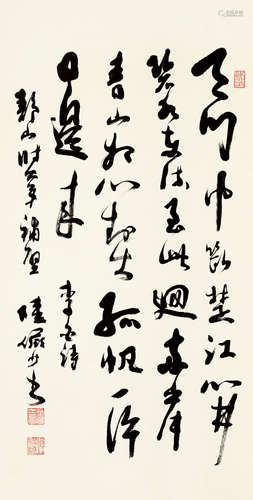 天門中斷楚江開
碧水東流至此迴兩岸
青山相對出孤帆一片
日邊來 李白詩
補壁 陸儼少書